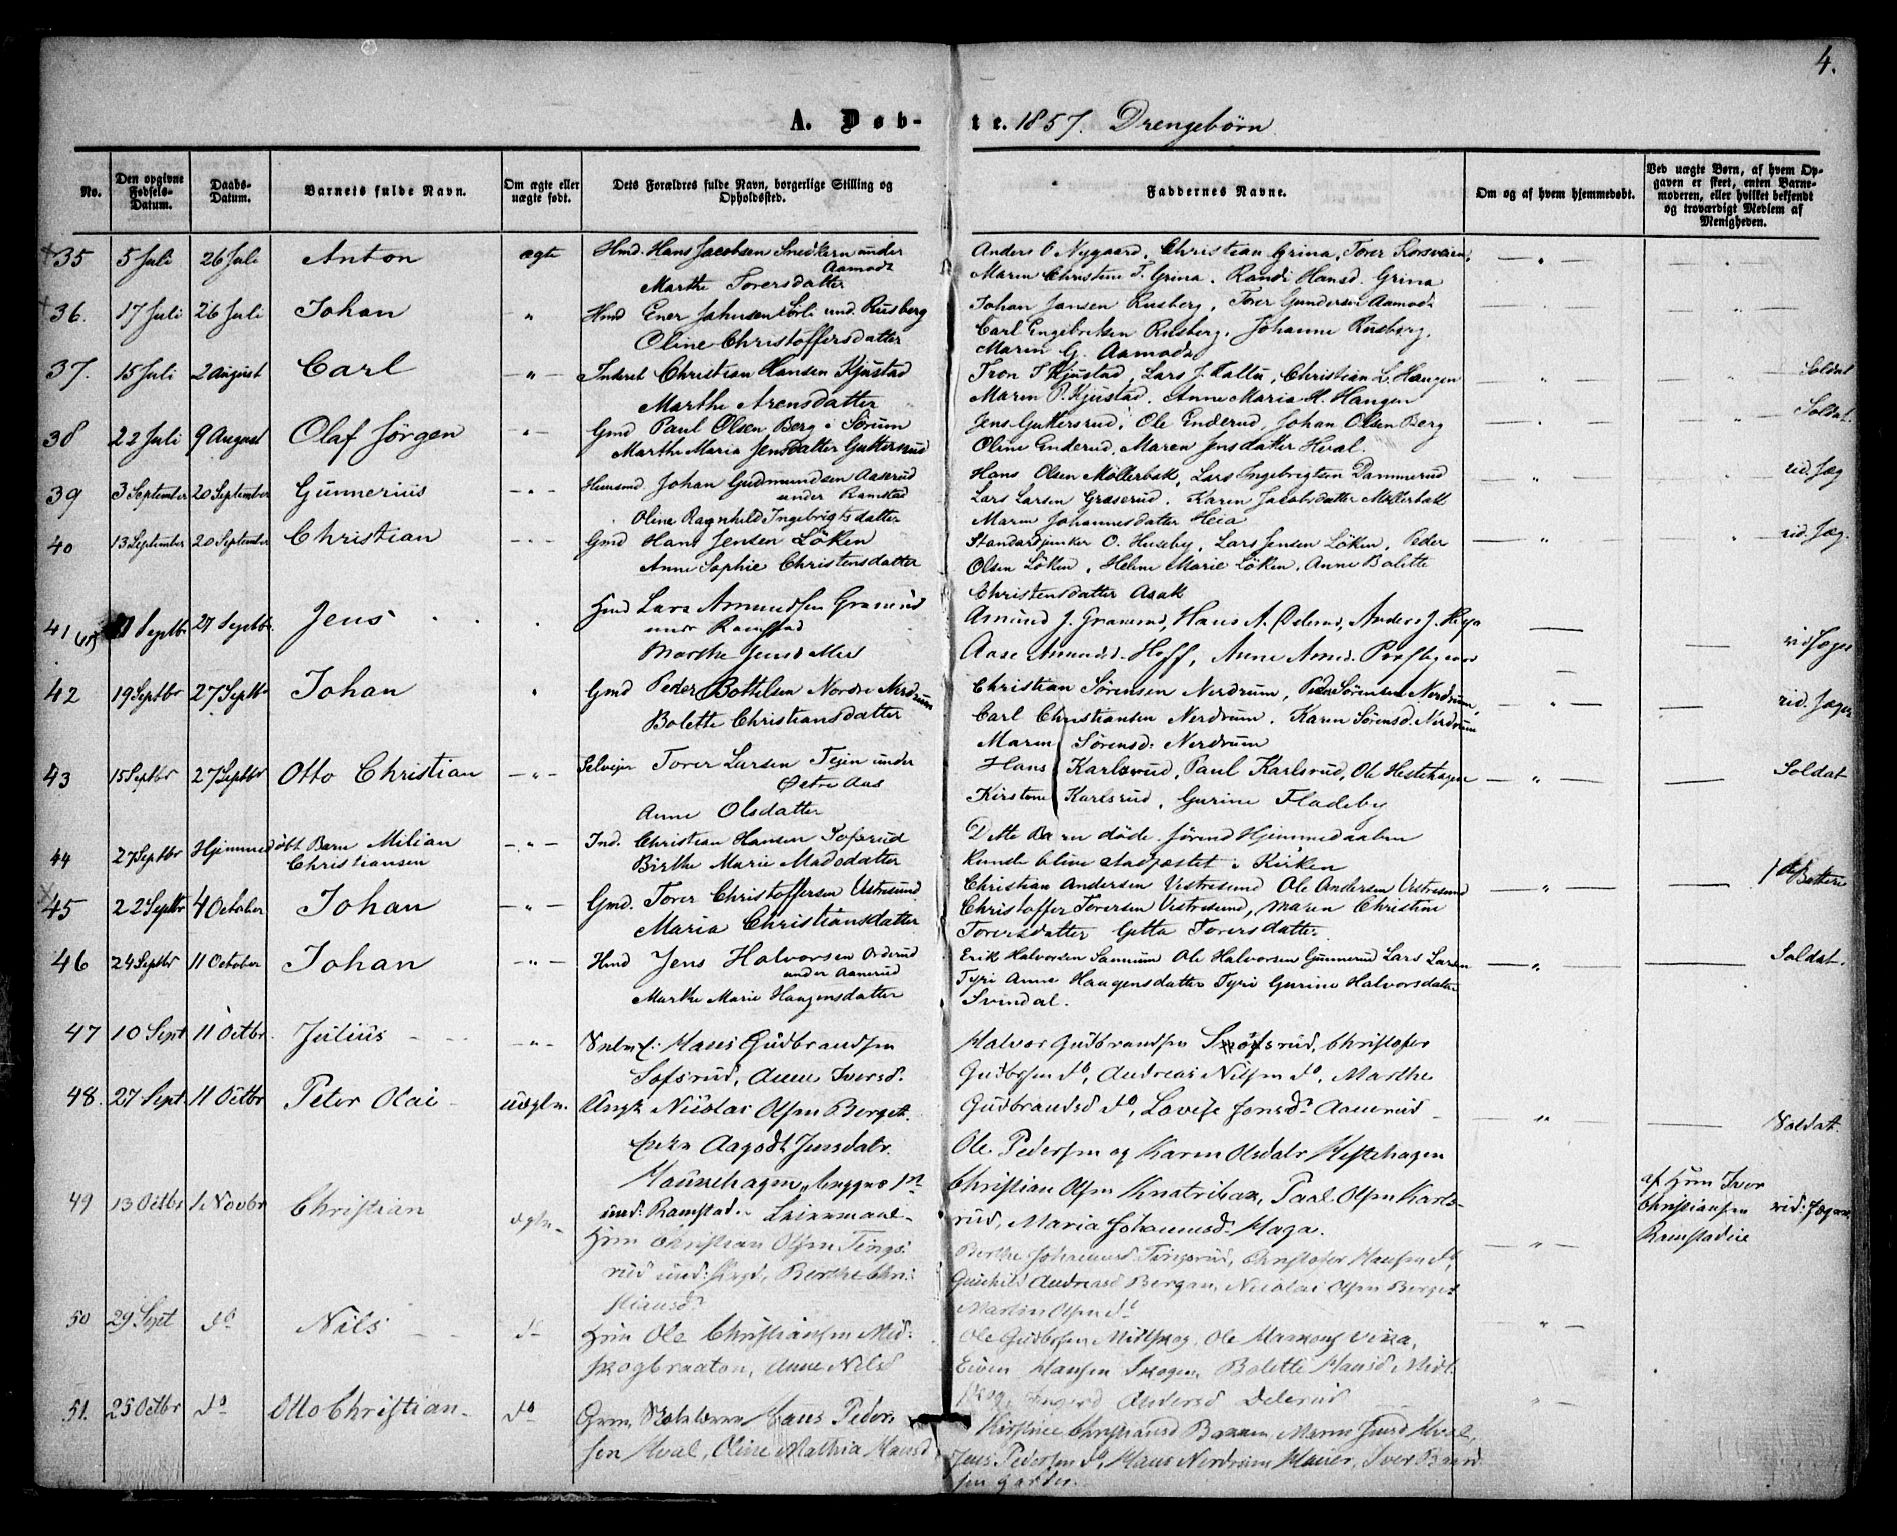 4.
A. Døb-
te. 1857. Drengebørn
No. Den opgivne Fødsels-Datum. Daabs-Datum. Barnets fulde Navn. Om ægte eller uægte født. Dets Forældres fulde Navn, borgerlige Stilling og Opholdssted. Faddernes Navne. Om og af hvem hjemmedøbt. Ved uægte Børn, af hvem Opgaven er skeet, enten Barnemoderen, eller hvilket bekjendt og troværdigt Medlem af Menigheden.
35 5 Juli 26 Juli Anton ægte Hmd. Hans Jacobsen Snedkern under Aamodt Anders O Nygaard, Christian Grina, Torer Korsveien,
Marthe Torersdatter Maren Christine T. Grina. Randi Hansd. Grina
36. 17 Juli 26 Juli Johan " Hmd Ener Johnsen Sörli und. Rusberg Johan Jansen Rusberg, Torer Gundersen Aamodt
Oline Christoffersdatter Carl Engebretsen Rusberg, Johanne Rusberg,
Maren G. Aamodt
37. 15 Juli 2 August Carl " Inderst Christian Hansen Kjustad Tron T Kjustad, Lars J. Tallu, Christian L. Haugen Soldat
Marthe Arensdatter Maren P. Kjustad. Anne Maria H. Haugen
38 22 Juli 9 August Olaf Jörgen " Gmd Paul Olsen Berg i Sörum Jens Guttersrud, Ole Enderud, Johan Olsen Berg Soldat.
Marthe Maria Jensdatter Guttersrud Oline Enderud, Maren Jensdatter Heval.
39 3 September 20 September Gunnerius " Huusmd. Johan Gudmundsen Aaserud under Ramstad Hans Olsen Möllerbak, Lars Ingebrigtsen Dammerud rid. Jæg
Oline Ragnhild Ingebrigtsdatter Lars Larsen Graserud. Karen Jacobsdatter Möllerbak
Maren Johannesdatter Heia
40 13 September 20 September Christian " Gmd Hans Jensen Löken Standartjunker O. Huseby, Lars Jensen Löken, Peder rid. Jæg.
Anne Sophie Christensdatter Olsen Löken, Helene Marie Löken, Anne Bolette
Christensdatter Asak
41 Septbr 27 Septbr. Jens Hmd Lars Amundsen under Ramstad Amund J. Hans A. Anders J. rid Jæger
Marthe Aase Amundsd. Hoff, Anne
42 19 Septbr 27 Septbr Johan " Gmd Peder Bottelsen Nordre Nerdrum Christian Sörensen Nerdrum, Peder Sörensen Nerdrum, rid. Jæger
Bolette Christiansdatter Carl Christiansen Nerdrum. Karen Sörensd. Nerdrum
Maren Sörensd: Nerdrum
43 15 Septbr 27 Septbr Otto Christian " Selveier Torer Larsen Tejen under Østre Aas Hans Karlsrud, Paul Karlsrud, Ole Hestehagen Soldat
Anne Olsdatter Kirstene Karlsrud, Gurine Fladeby
44 27 Septbr Hjemmedöbt Barn Milian Christiansen " Ind. Christian Hansen Sofsrud Dette Barn döde förend Hjemmedaaben
Birthe Marie Madsdatter kunde blive stadfæstet i Kirken
45 22 Septbr 4 October Johan " Gmd. Torer Christoffersen Vestresund Christian Andersen Vestresund Ole Andersen Vestresund
Maria Christiansdatter Christoffer Torersen Vestresund, Maren Christine
Torersdatter Getta Torersdatter
46 24 Septbr 11 October Johan " Hmd Jens Halvorsen Orderud under Aanerud Erik Halvorsen Sannum Ole Halvorsen Gunnerud Lars Larsen Soldat.
Marthe Marie Haagensdatter Tyri Anne Haagensdatter Tyri Gurine Halvorsdatter
Svindal.
47 10 Sept 11 Octbr. Julius " Hans Gudbrandsen Halvor Gudbrandsen Christofer
Sofsrud, Anne Iversd. Gudbrsen do, Andreas Nilsen do, Marthe
Gudbrandsd do, Lovise Jonsd. Aanerud
48. 27 Sept 11 Octbr Peter Olai uægte. Ungk. Nicolai Olsen Berget Ole Pedersen og Karen Olsdatr Hestehagen Soldat.
Pike Aagodt Jensdatr. Christian Olsen Knatribak, Paul Olsen Karls-
und: Ramstad rud, Maria Johannesd. Haga.
49 13 Octbr 1 Novbr Christian ægte Hmn Christian Olsen Tings- Berthe Johannesd Tingsrud, Christofer Hansen do, af Hmn Iver Christiansen Ramstadeie rid: Jæger
rud und: Berthe Chri- Gunhild Andreasd Bergan, Nicolai Olsen Berget
stiansd. Martin Olsen do
50 29 Sept do Nils do Hmn Ole Christiansen Mid- Ole Gudbrsen Midtskog, Ole
skogbraaten, Anne Nilsd Even Hansen Skogen, Bolette Hansd Midt-
skog, Andersd Delerud
51. 25 Octbr do Otto Christian. do Gmn, Hans Peder- Kirstine Christiansd Bakken, Maren Jensd Hval,
sen Hval, Oline Mathia Hansd Jens Pedersen do, Hans Nerdrum Iver Baard-
sen Garder.